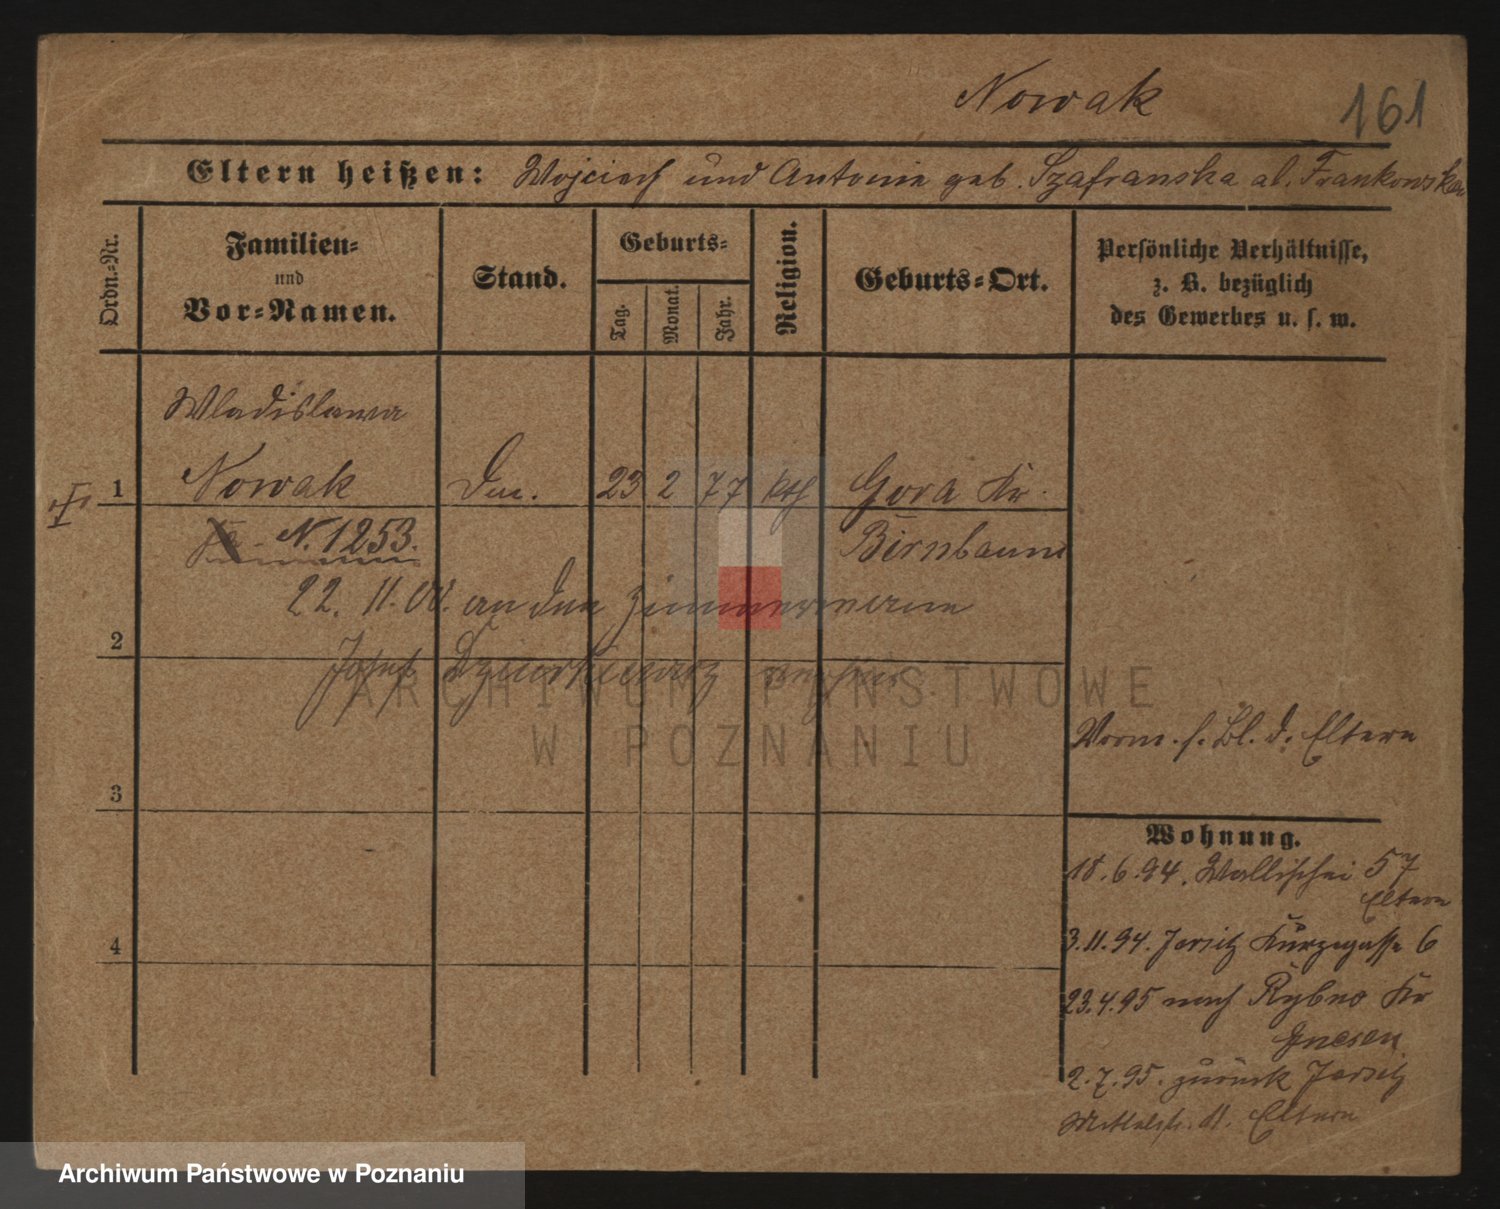 Nowak 161
Eltern heißen: Wojciech und Antonie geb. Szafranska al. Frankowska
Ordn.-Nr.
Familien-
und
Vor-Namen.
Stand.
Geburts-
Tag.
Monat.
Jahr.
Religion.
Geburts-Ort.
Persönliche Verhältnisse,
z. B. bezüglich
des Gewerbes u. s. w.
Wladislawa
1 Nowak 23 2 77 kth Gora Kr.
N. 1253. Birnbaum
22. 11. 00. an den Zimmermann
2
Josef
ARCHIWUM PAŃSTWOWE
W POZNANIU
Vorm. s. Bl. d. Eltern
3
Wohnung.
18.6.94. Wallischei 57
Eltern
4
3.11.94. Jersitz Kurzegasse 6
23.4.95 nach Rybno Kr
Gnesen
2.7.95. zurück Jersitz
Mittelstr. 11. Eltern
Archiwum Państwowe w Poznaniu